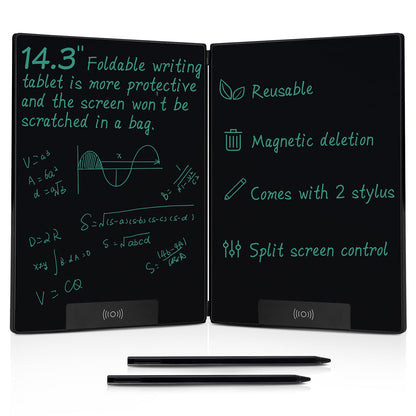 14.3" Foldable writing
tablet is more protective
and the screen won't be
scratched in a bag.
V=a³
A=6a²
d=a√3
x
S=√(s-a)(s-b)(s-c)(s-d)
D=2R
S=√abcd
V=CQ
Reusable
Magnetic deletion
Comes with 2 stylus
Split screen control